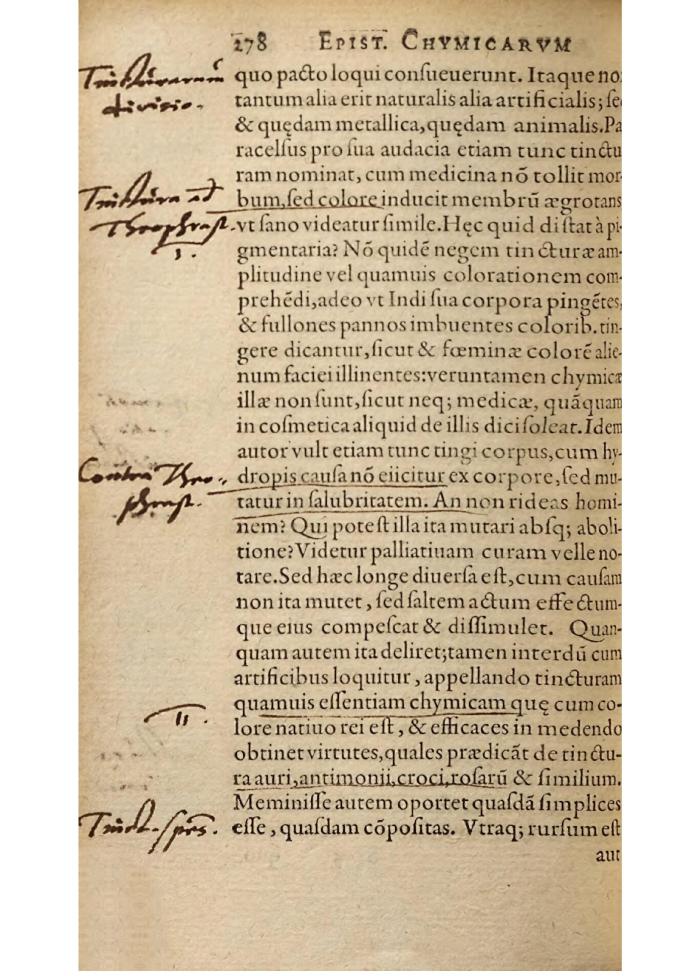 278 EPIST. CHYMICARVM
Tincturarum
diuisio.
quo pacto loqui consueuerunt. Itaque no
tantum alia erit naturalis alia artificialis; se
& quędam metallica, quędam animalis. Pa
racelsus pro sua audacia etiam tunc tinctu
ram nominat, cum medicina nõ tollit mor-
Tinctura
Theophrast.
1.
bum, sed colore inducit membrũ ægrotans
vt sano videatur simile. Hęc quid distat à pi-
gmentaria? Nõ quidẽ negem tincturæ am-
plitudine vel quamuis colorationem com-
prehẽdi, adeo vt Indi sua corpora pingẽtes,
& fullones pannos imbuentes colorib. tin-
gere dicantur, sicut & fœminæ colorẽ alie-
num faciei illinentes: veruntamen chymicæ
illæ non sunt, sicut neq; medicæ, quãquam
in cosmetica aliquid de illis dici soleat. Idem
autor vult etiam tunc tingi corpus, cum hy-
Contra Theo-
phrast.
dropis causa nõ eiicitur ex corpore, sed mu-
tatur in salubritatem. An non rideas homi-
nem? Qui potest illa ita mutari absq; aboli-
tione? Videtur palliatiuam curam velle no-
tare. Sed hæc longe diuersa est, cum causam
non ita mutet, sed saltem actum effectum-
que eius compescat & dissimulet. Quan-
quam autem ita deliret; tamen interdũ cum
artificibus loquitur, appellando tincturam
quamuis essentiam chymicam quę cum co-
II.
lore natiuo rei est, & efficaces in medendo
obtinet virtutes, quales prædicãt de tinctu-
ra auri, antimonij, croci, rosarũ & similium.
Meminisse autem oportet quasdã simplices
Tinct.
esse, quasdam cõpositas. Vtraq; rursum est
aut